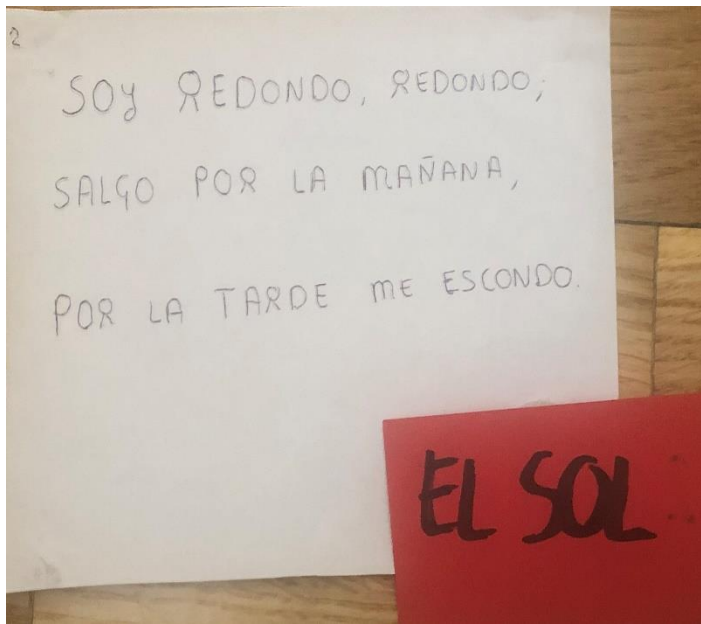 2
SOY REDONDO, REDONDO;
SALGO POR LA MAÑANA,
POR LA TARDE ME ESCONDO.
EL SOL